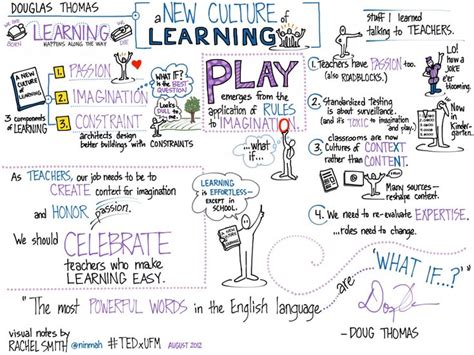 DOUGLAS THOMAS
WE ARE BORN
LEARNING
HAPPENS ALONG THE WAY
WE LOVE
a NEW CULTURE of
LEARNING
A NEW CULTURE of LEARNING
3 components
of LEARNING
1. PASSION
2. IMAGINATION
3. CONSTRAINT
architects design
better buildings with CONSTRAINTS
WHAT IF?
is the BEST
QUESTION
PLAY
emerges from the
application of RULES
to IMAGINATION.
...what
if...
stuff I learned
talking to TEACHERS.
1. Teachers have PASSION too.
(also ROADBLOCKS.)
2. Standardized testing
is about surveillance.
(and it's TOXIC to imagination
and play.)
Now in
Kinder-
garten.
classrooms are now
3. Cultures of CONTEXT
rather than CONTENT.
Many sources—
reshape context
4. We need to re-evaluate EXPERTISE.
...roles need to change.
As TEACHERS, our job needs to be to
CREATE context for imagination
and HONOR passion.
We should CELEBRATE
teachers who make
LEARNING EASY.
LEARNING
is EFFORTLESS—
EXCEPT IN
SCHOOL.
"The most POWERFUL WORDS in the English language
are
'WHAT IF...?'"
—DOUG THOMAS
visual notes by
RACHEL SMITH @ninmah #TEDxUFM AUGUST 2012